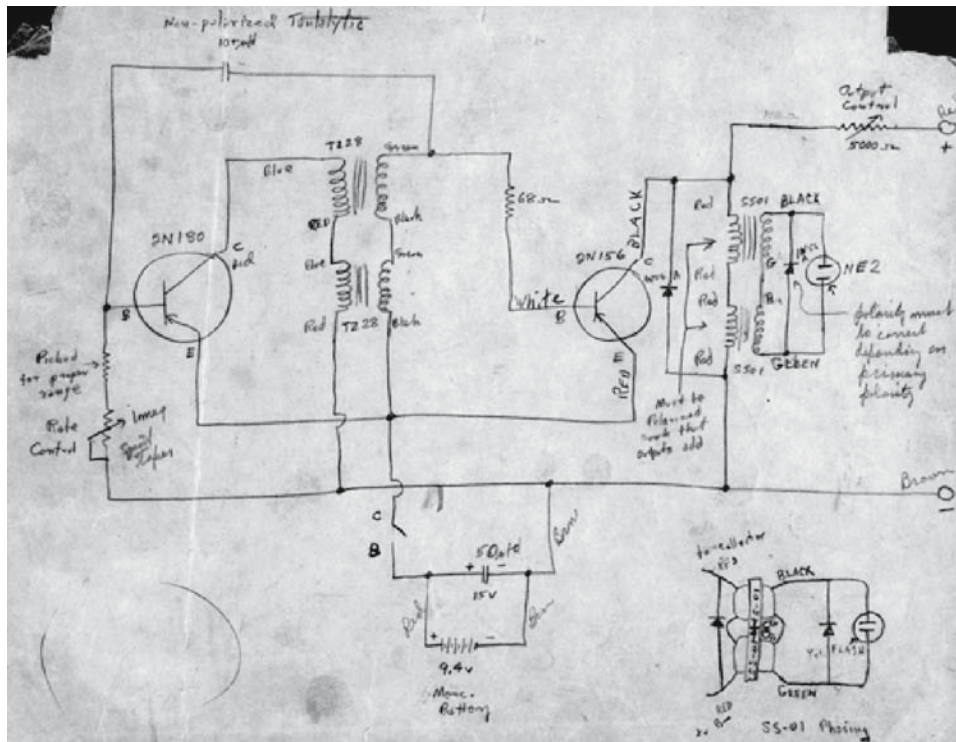 Non-polarized Tantalytic
10 mfd
Output
Control
5000 Ω
+
TZ28
Green
Blue
RED
Black
68 Ω
BLACK
Red
SS01
BLACK
2N180
C
Red
Blue
Green
2N156
C
Red
NE2
B
White
B
Red
Red
TZ28
Black
E
E
RED
Red
SS01
GREEN
polarity must
be correct
depending on
primary
polarity
Picked
for proper
range
Rate
Control
1 meg
Taper
Must be
Polarized
such that
outputs add
Brown
C
B
Brn
+ 50 mfd -
15V
Red
Brn
+ -
9.4V
Battery
to collector
RED
BLACK
FLASH
GREEN
RED
SS-01 Phasing